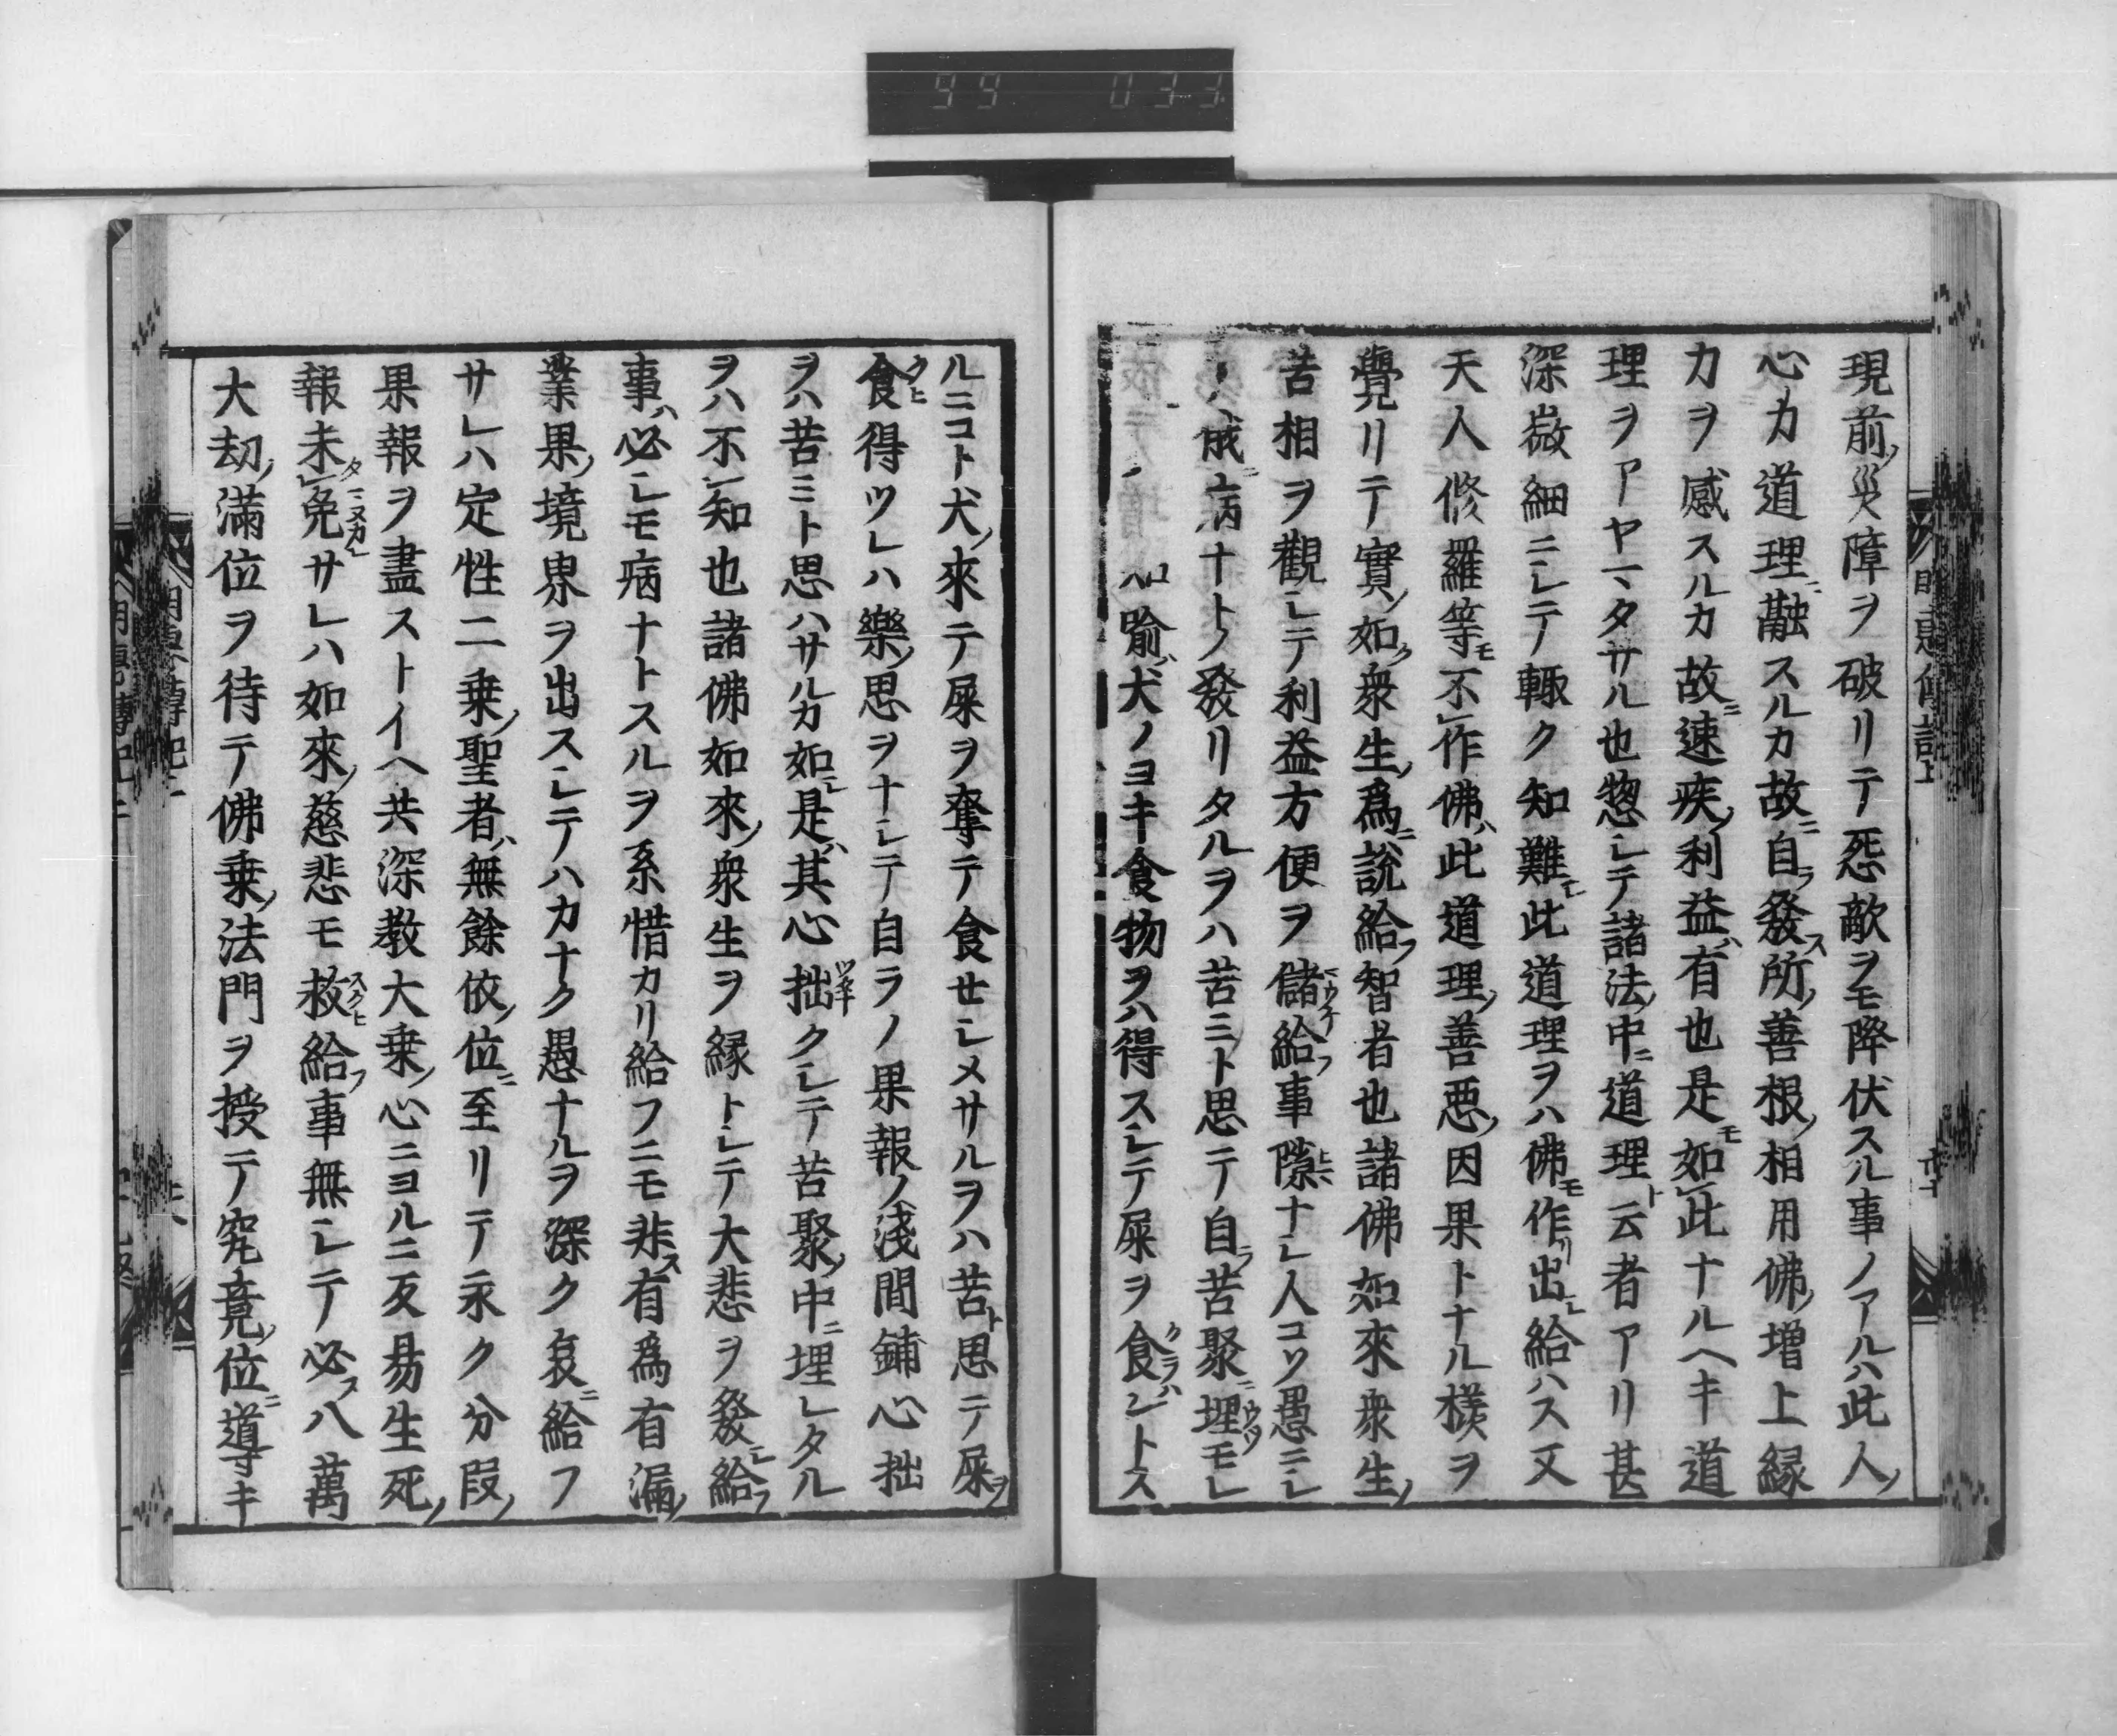 99 033
現前ノ災障ヲ破リテ惡敵ヲモ降伏スル事ノアルハ此人ノ
心カ道理ニ融スルカ故ニ自ラ發ス所ノ善根ノ相用佛ノ増上縁
力ヲ感スルカ故ニ速疾ノ利益ハ有也是モ如此ナルヘキ道
理ヲアヤマタサル也惣シテ諸法ノ中ニ道理ト云者アリ甚
深微細ニシテ輙ク知難シ此道理ヲハ佛モ作リ出シ給ハス又
天人修羅等モ不作佛ハ此道理ノ善惡ノ因果トナル樣ヲ
覺リテ實ノ如ク衆生ノ爲ニ說給フ智者也諸佛如來衆生ノ
苦相ヲ觀シテ利益方便ヲ儲マウケ給フ事隙ヒマナシ人コソ愚ニシ
ハ成ニ病ナトノ發リタルヲハ苦ミト思テ自ラ苦聚ニ埋ウツモレ
喻ハ犬ノヨキ食物ヲハ得スシテ屎ヲ食クラハントス
ルニコト犬ノ來テ屎ヲ奪テ食セシメサルヲハ苦ト思テ屎ヲ
食クヒ得ツレハ樂ノ思ヲナシテ自ラノ果報ノ淺間鋪心拙
ヲハ苦ミト思ハサルカ如シ是ハ其心拙ツタナクシテ苦聚ノ中ニ埋レタル
ヲハ不知也諸佛如來ノ衆生ヲ縁トシテ大悲ヲ發シ給フ
事ハ必シモ病ナトスルヲ糸惜カリ給フニモ非ス有爲有漏ノ
業果ノ境界ヲ出スシテハカナク愚ナルヲ深ク哀ニ給フ
サレハ定性二乗ノ聖者ハ無餘依ノ位ニ至リテ永ク分段ノ
果報ヲ盡ストイヘ共深教大乗ノ心ニヨルニ反易生死ノ
報未タ免マヌカレサレハ如來ノ慈悲モ救スクヒ給フ事無シテ必ス八萬
大劫ノ滿位ヲ待テ佛乗ノ法門ヲ授テ究竟ノ位ニ導キ